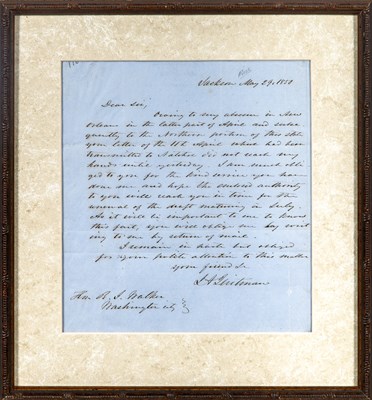 Jackson May 29, 1850
Dear Sir,
Owing to my absence in New
Orleans in the latter part of April and subse
quently to the Northern portion of this state
your letter of the 11th April which had been
transmitted to Natchez did not reach my
hands until yesterday. I am much obli
ged to you for the kind service you have
done me and hope the enclosed authority
to you will reach you in time for the
renewal of the draft maturing in July.
As it will be important to me to know
this fact, you will oblige me by writ
ing to me by return of mail.
I remain in haste but obliged
for your polite attention to this matter
your friend &c
J. A. Quitman
Hon. R. J. Walker
Washington city